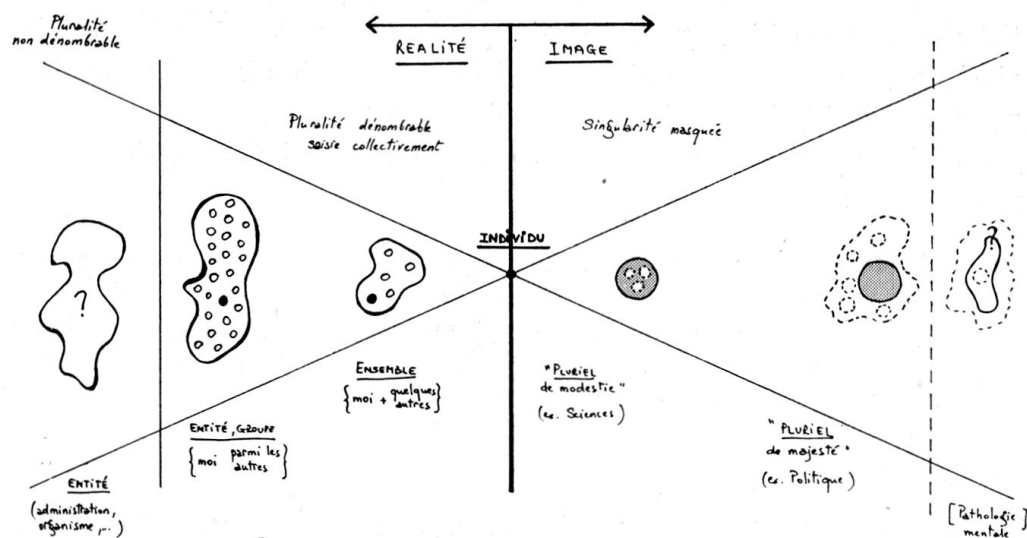 Pluralité
non dénombrable
REALITÉ
IMAGE
Pluralité dénombrable
saisie collectivement
Singularité masquée
INDIVIDU
?
?
ENSEMBLE
{moi + quelques autres}
"PLURIEL
de modestie"
(ex. Sciences)
ENTITÉ, GROUPE
{moi parmi les autres}
"PLURIEL
de majesté"
(ex. Politique)
ENTITÉ
(administration,
organisme,...)
[Pathologie
mentale]